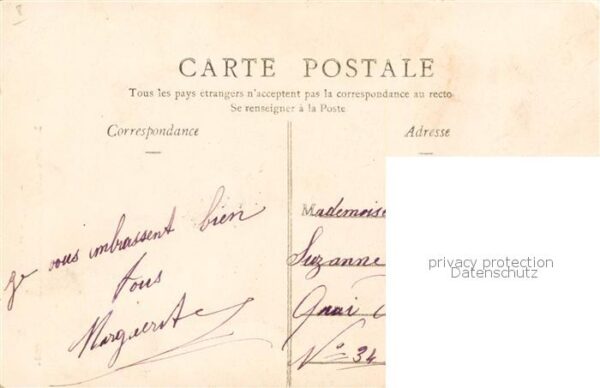 CARTE POSTALE
Tous les pays etrangers n'acceptent pas la correspondance au recto
Se renseigner à la Poste
Correspondance
je vous imbrassent bien
tous
Marguerite
Adresse
Mademoise
Suzanne
Quai
N° 34
privacy protection
Datenschutz